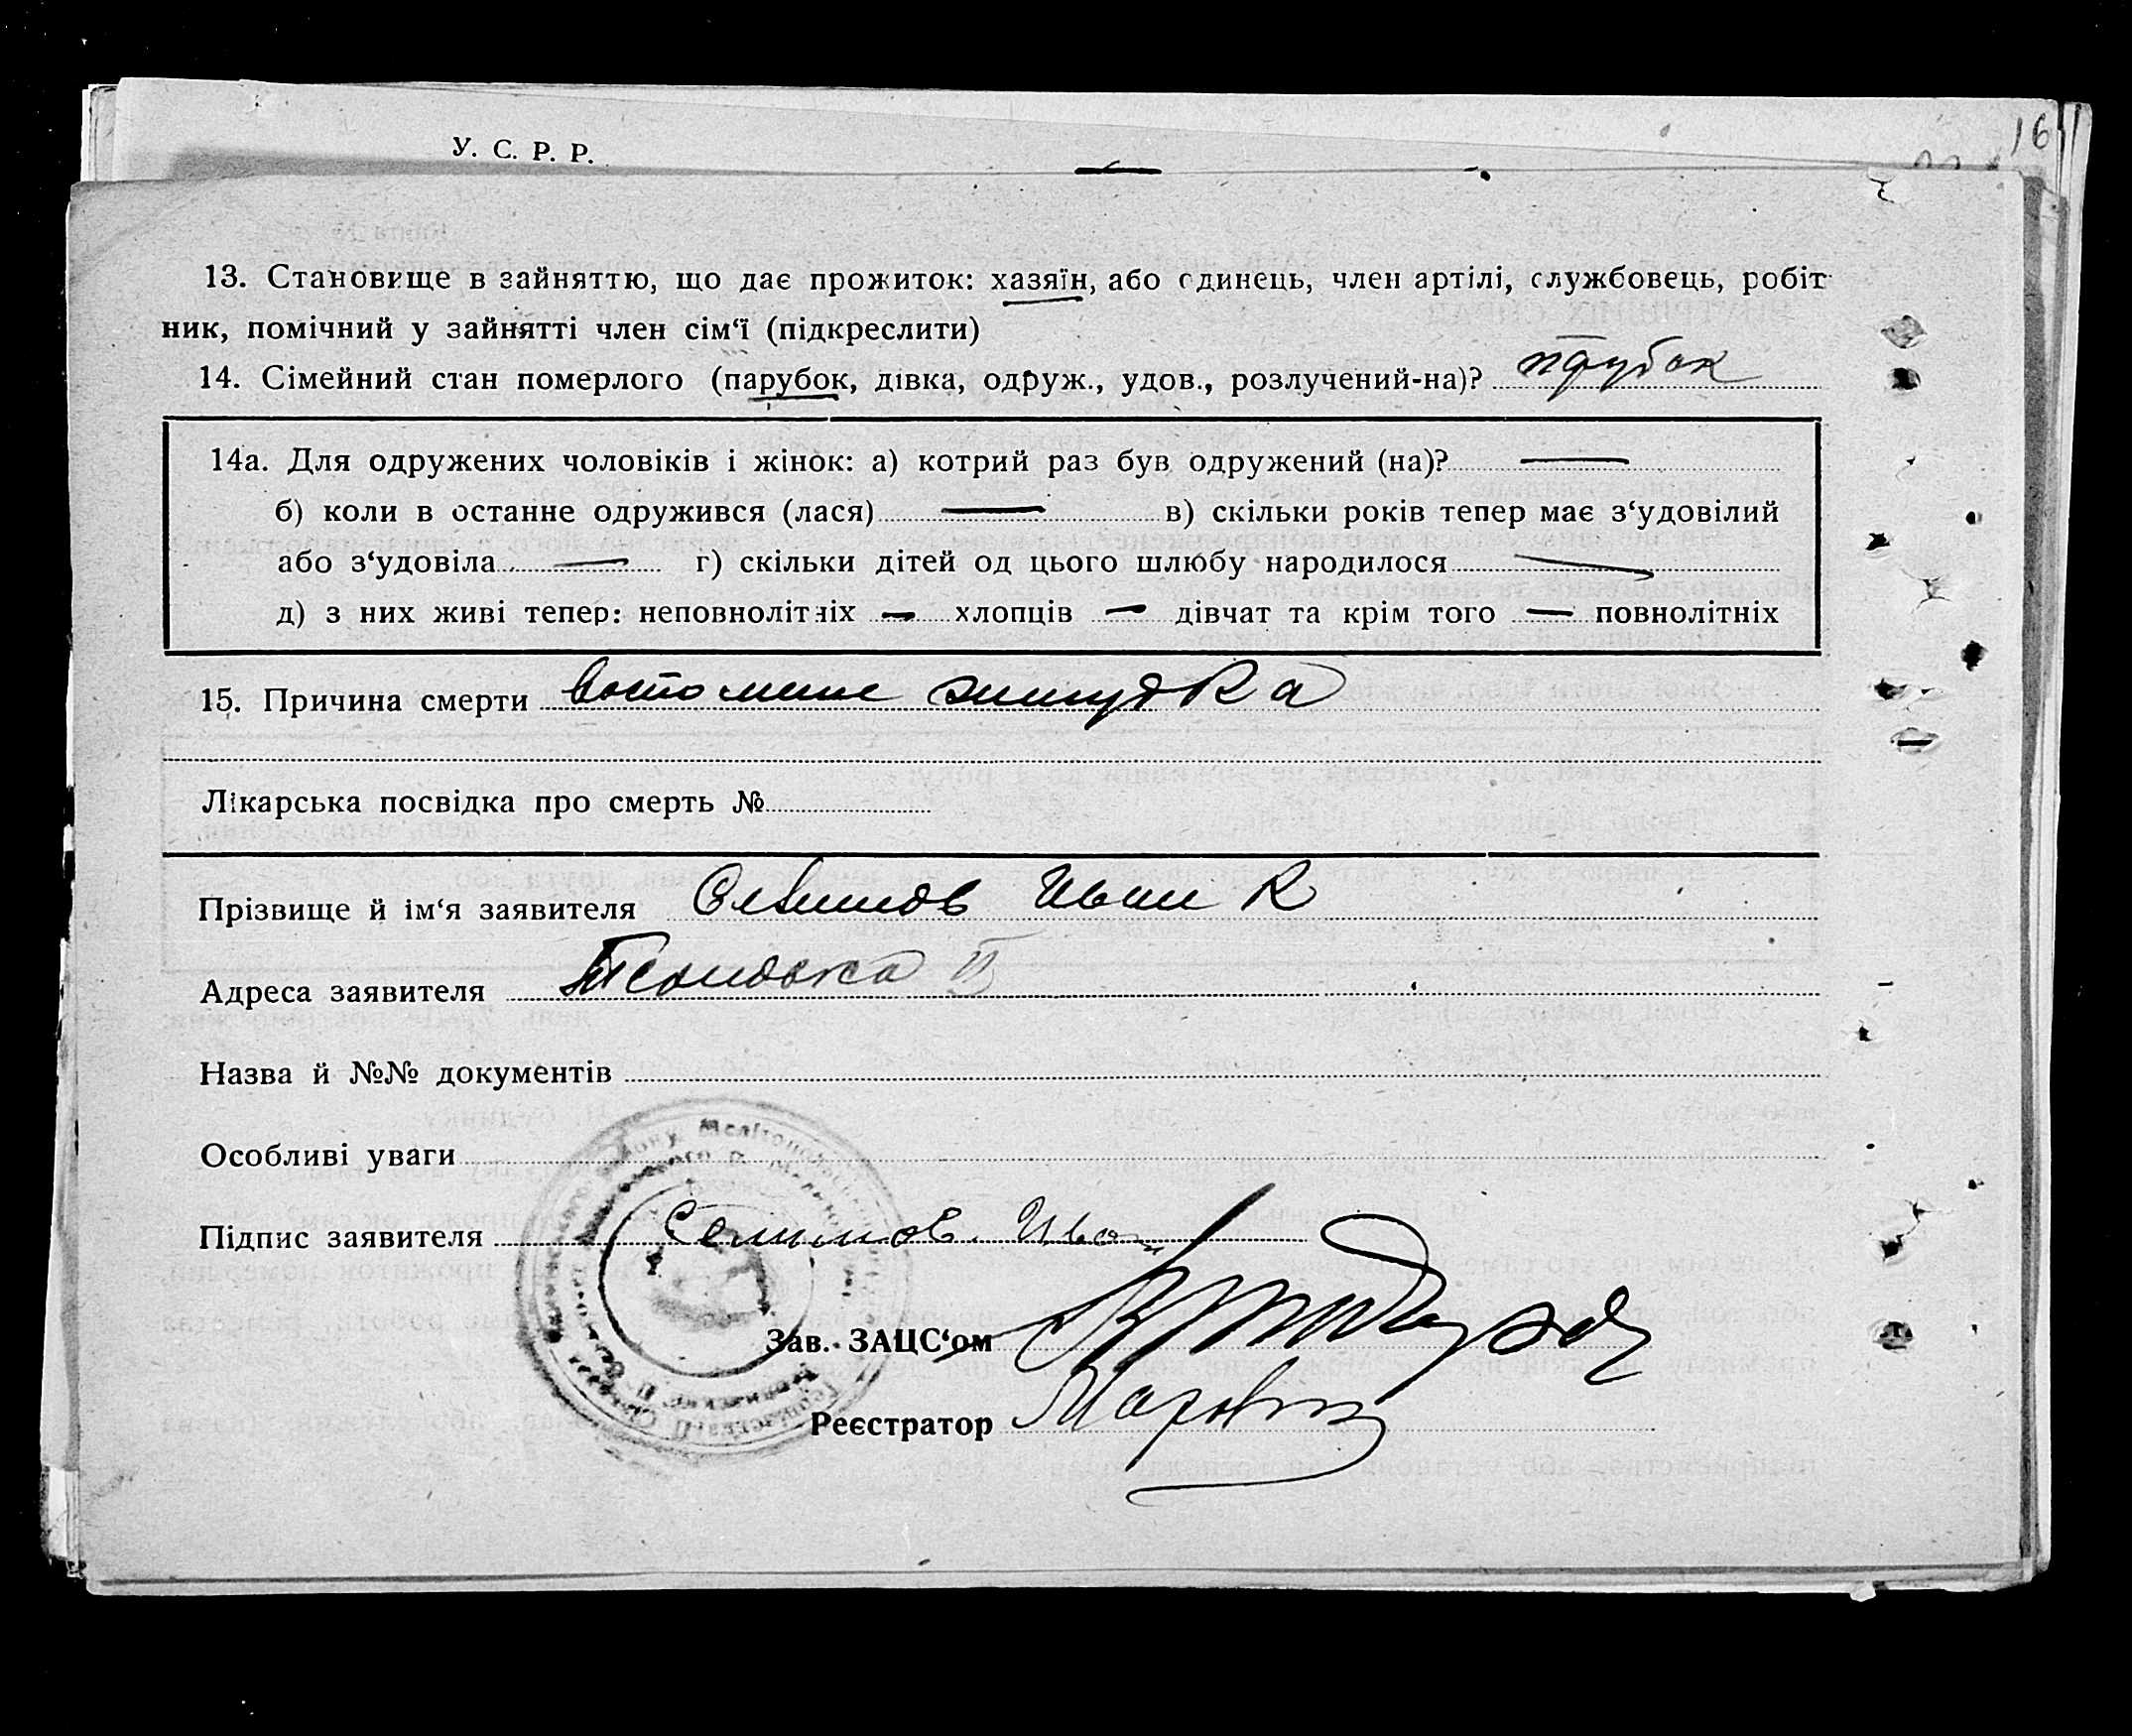 16
У. С. Р. Р.
13. Становище в зайняттю, що дає прожиток: хазяїн, або єдинець, член артілі, службовець, робіт
ник, помічний у зайнятті член сім‘ї (підкреслити)
14. Сімейний стан померлого (парубок, дівка, одруж., удов., розлучений-на)? прубок
14а. Для одружених чоловіків і жінок: а) котрий раз був одружений (на)? —
б) коли в останне одружився (лася) — в) скільки років тепер має з‘удовілий
або з‘удовіла — г) скільки дітей од цього шлюбу народилося —
д) з них живі тепер: неповнолітніх — хлопців — дівчат та крім того — повнолітніх
15. Причина смерти
Лікарська посвідка про смерть №
Прізвище й ім‘я заявителя Иван К
Адреса заявителя
Назва й №№ документів
Особливі уваги
Підпис заявителя Селимов Иван
Зав. ЗАЦС‘ом
Реєстратор